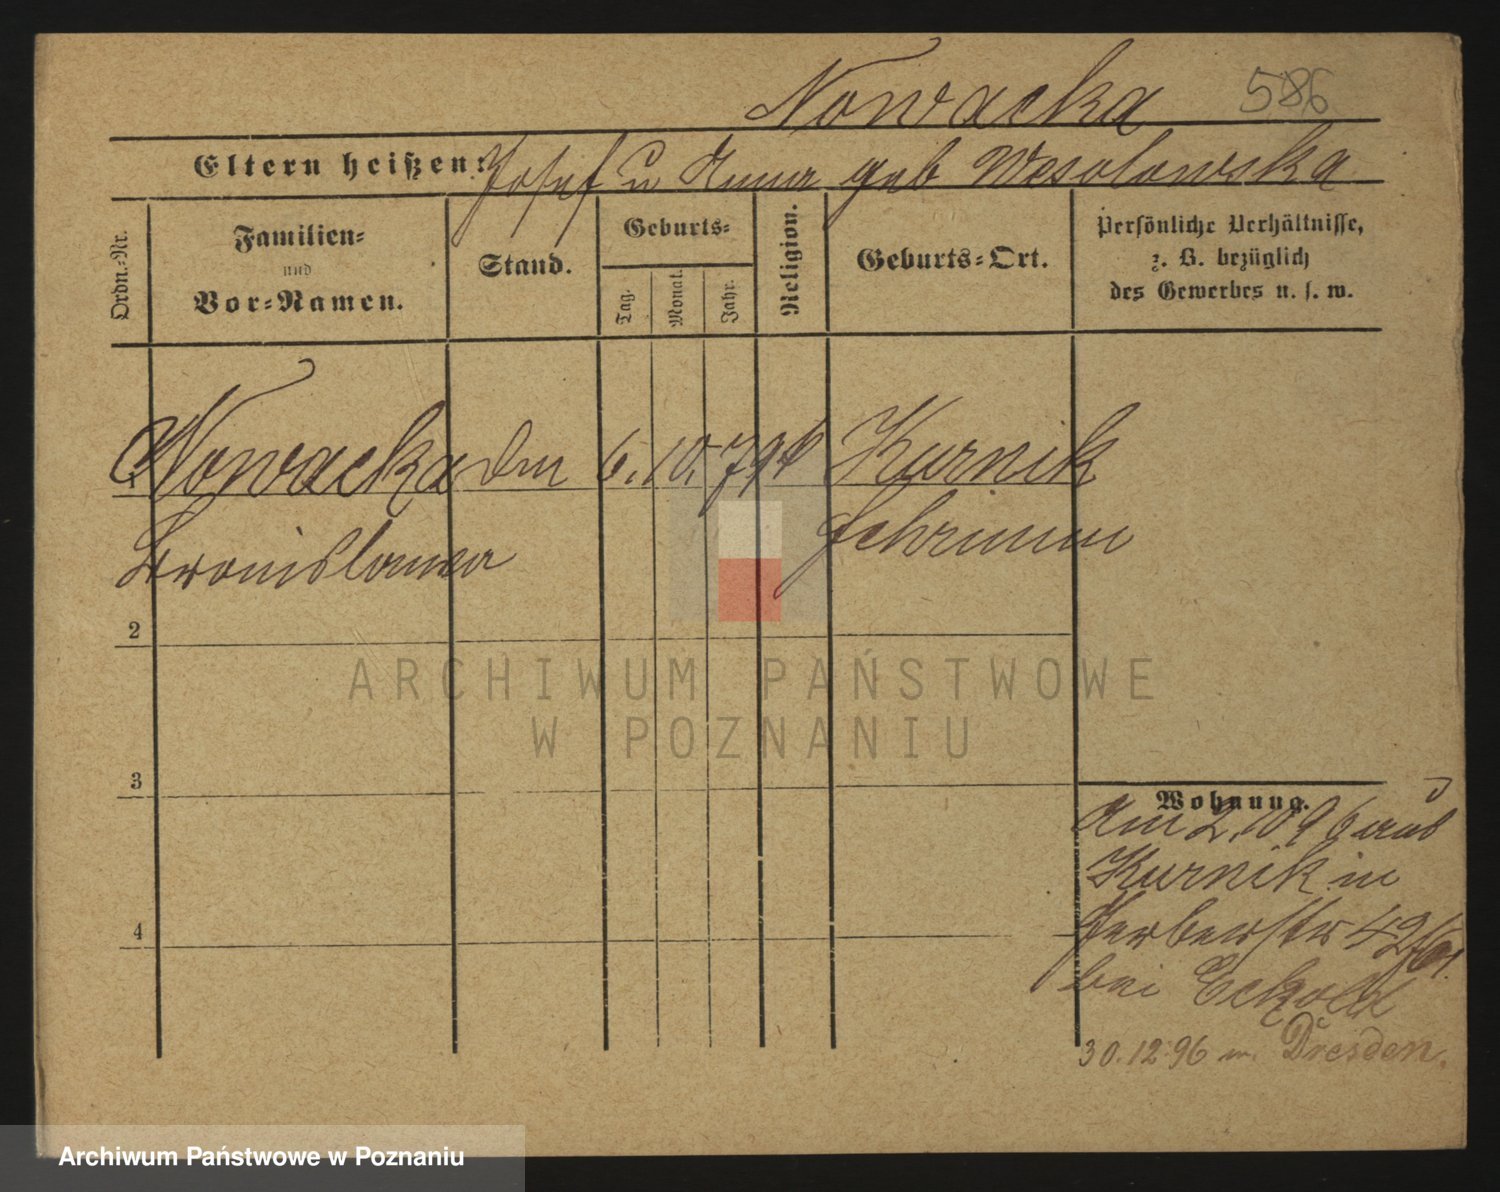 Nowacka 586
Eltern heißen: Josef u Anna geb Wesolowska
Ordn.-Nr.
Familien-
und
Vor-Namen.
Stand.
Geburts-
Tag.
Monat.
Jahr.
Religion.
Geburts-Ort.
Persönliche Verhältnisse,
z. B. bezüglich
des Gewerbes u. s. w.
1 Nowacka 6. 10. 79 k Kurnik
Bronislawa Schrimm
2
ARCHIWUM PAŃSTWOWE
W POZNANIU
3
Wohnung.
Am 2.10 96 aus
Kurnik in
4
bei Eckold
30.12.96 n. Dresden.
Archiwum Państwowe w Poznaniu